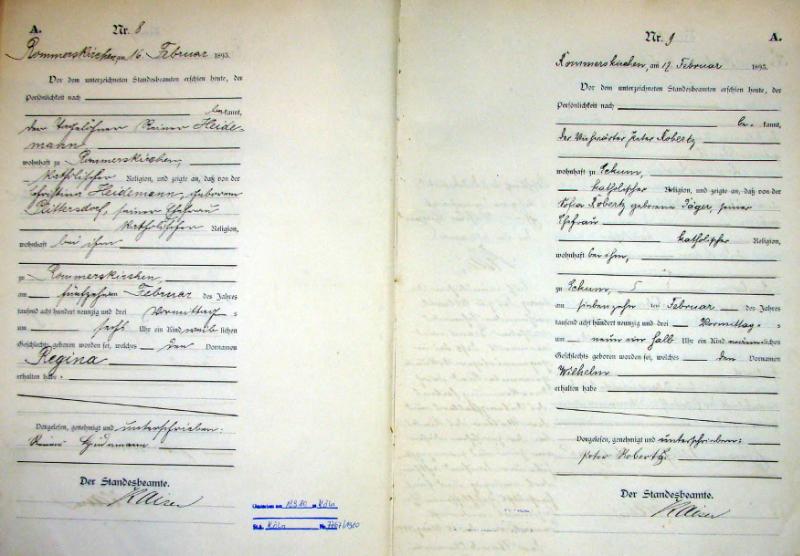 A.
Nr. 8
Rommerskirchen, am 16 Februar 1893.
Vor dem unterzeichneten Standesbeamten erschien heute, der
Persönlichkeit nach
bekannt,
der Tagelöhner Reiner Heide-
mann
wohnhaft zu Rommerskirchen,
katholischer Religion, und zeigte an, daß von der
Christina Heidemann, geborenen
Rüttersdorf, seiner Ehefrau
katholischer Religion,
wohnhaft bei ihm
zu Rommerskirchen,
am fünfzehnten Februar des Jahres
tausend acht hundert neunzig und drei Vormittags
um sechs Uhr ein Kind weiblichen
Geschlechts geboren worden sei, welches den Vornamen
Regina
erhalten habe.
Vorgelesen, genehmigt und unterschrieben:
Reiner Heidemann
Der Standesbeamte.
Kaiser
12.9.10 Köln
Köln Nr.
Nr. 9
A.
Rommerskirchen, am 17 Februar 1893.
Vor dem unterzeichneten Standesbeamten erschien heute, der
Persönlichkeit nach
be- kannt,
der Peter Robertz
wohnhaft zu Eckum,
katholischer Religion, und zeigte an, daß von der
Sofia Robertz geborene Jäger, seiner
Ehefrau
katholischer Religion,
wohnhaft bei ihm,
zu Eckum,
am siebenzehnten Februar des Jahres
tausend acht hundert neunzig und drei Vormittags
um neun ein halb Uhr ein Kind männlichen
Geschlechts geboren worden sei, welches den Vornamen
Wilhelm
erhalten habe
Vorgelesen, genehmigt und unterschrieben:
Peter Robertz
Der Standesbeamte.
Kaiser